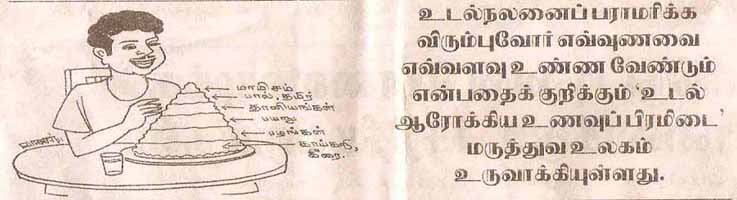 மாமிசம்
பால், தயிர்
தானியங்கள்
பயறு
பழங்கள்
காய்கறி,
கீரை.
உடல்நலனைப் பராமரிக்க
விரும்புவோர் எவ்வுணவை
எவ்வளவு உண்ண வேண்டும்
என்பதைக் குறிக்கும் 'உடல்
ஆரோக்கிய உணவுப் பிரமிடை'
மருத்துவ உலகம்
உருவாக்கியுள்ளது.